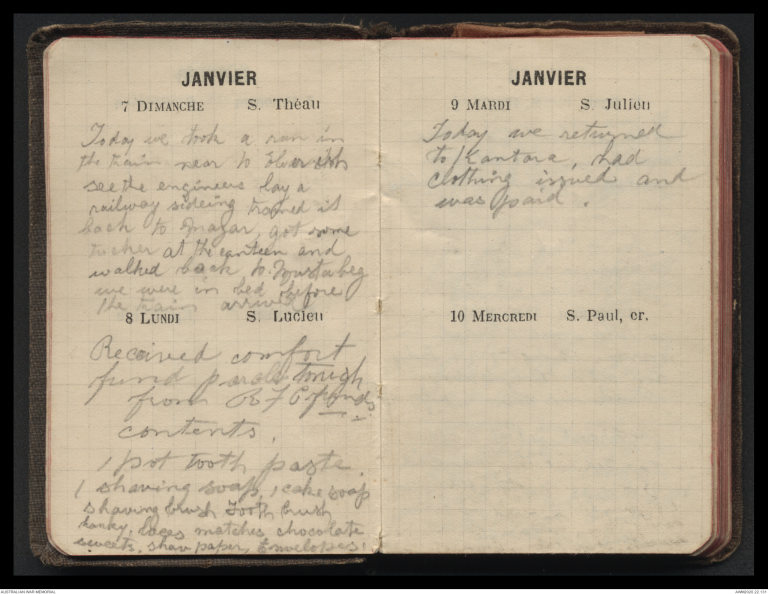 JANVIER
7 DIMANCHE S. Théau
Today we took a run in
the train near to
see the engineers lay a
railway sideing trained it
back to Mazar, got some
tucker at the canteen and
walked back to Mustabeg
we were in bed before
the train arrived
8 LUNDI S. Lucien
Received comfort
fund parcle
from
contents.
1 pot tooth paste.
1 shaving soap, 1 cake soap
shaving brush Tooth brush
hanky, laces matches chocolate
sweets, shav paper, Envelopes.
JANVIER
9 MARDI S. Julien
Today we returned
to Kantara, had
clothing issued and
was paid.
10 MERCREDI S. Paul, er.
AUSTRALIAN WAR MEMORIAL